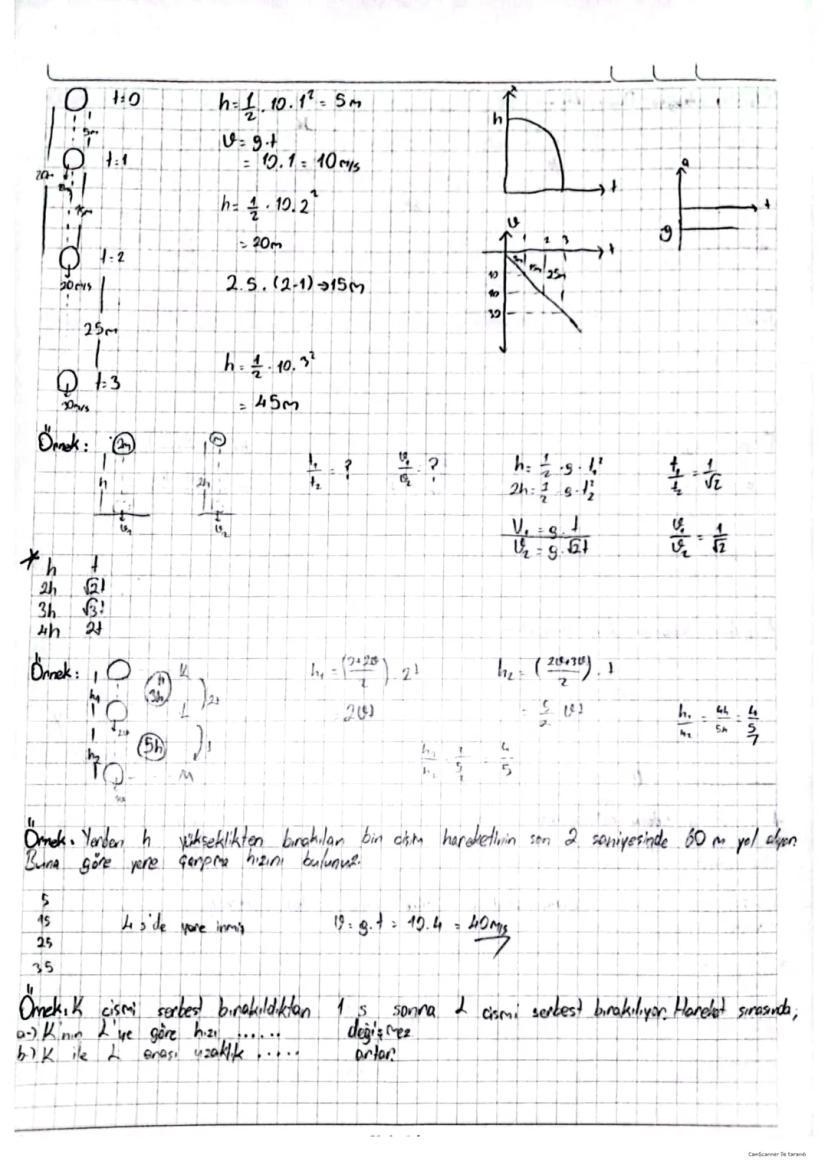 t=0
h=1/2 . 10 . 1² = 5m
5m
v = g.t
= 10.1 = 10 m/s
t=1
h
t
h = 1/2 . 10 . 2²
= 20m
15m
t=2
20m/s
2.5.(2-1) → 15m
a
t
g
v
t
1 2 3
5m 15m 25m
10
30
25m
h = 1/2 . 10 . 3²
= 45m
t=3
30m/s
Örnek:
2m
m
h
2h
v₁
v₂
t₁/t₂ = ?
v₁/v₂ = ?
h = 1/2 . g . t₁²
2h = 1/2 . g . t₂²
t₁/t₂ = 1/√2
V₁ = g . t
V₂ = g . √2t
v₁/v₂ = 1/√2
* h t
2h √2t
3h √3t
4h 2t
Örnek:
h₁
h₂
K
L
M
3h
5h
2t
t
h₂ = (2v+3v/2) . t
= 5/2 vt
= 2vt
h₁/h₂ = 4h/5h = 4/5
4/5
Örnek: Yerden h yükseklikten bırakılan bir cisim hareketinin son 2 saniyesinde 60 m yol alıyor.
Buna göre yere çarpma hızını bulunuz.
5
15
25
35
4 s'de yere inmiş
v = g.t = 10.4 = 40 m/s
Örnek: K cismi serbest bırakıldıktan 1 s sonra L cismi serbest bırakılıyor. Hareket sırasında,
a-) K'nın L'ye göre hızı ...... değişmez
b-) K ile L arası uzaklık ..... artar.
CamScanner ile tarandı